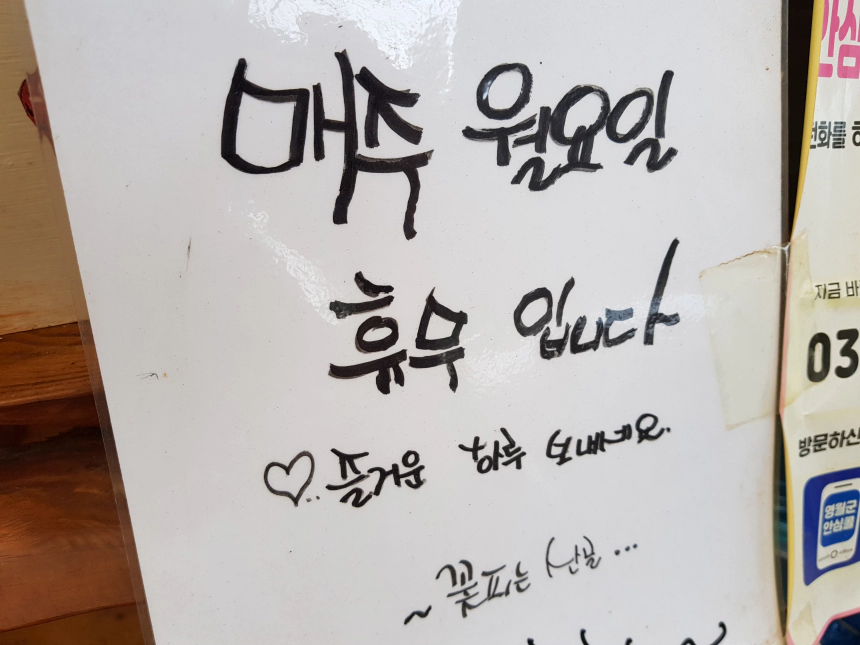 매주 월요일
휴무 입니다
♡.. 즐거운 하루 보내세요.
~ 꽃피는 산골 ...
안심
전화를
지금 바
03
방문하신
영월군
안심콜